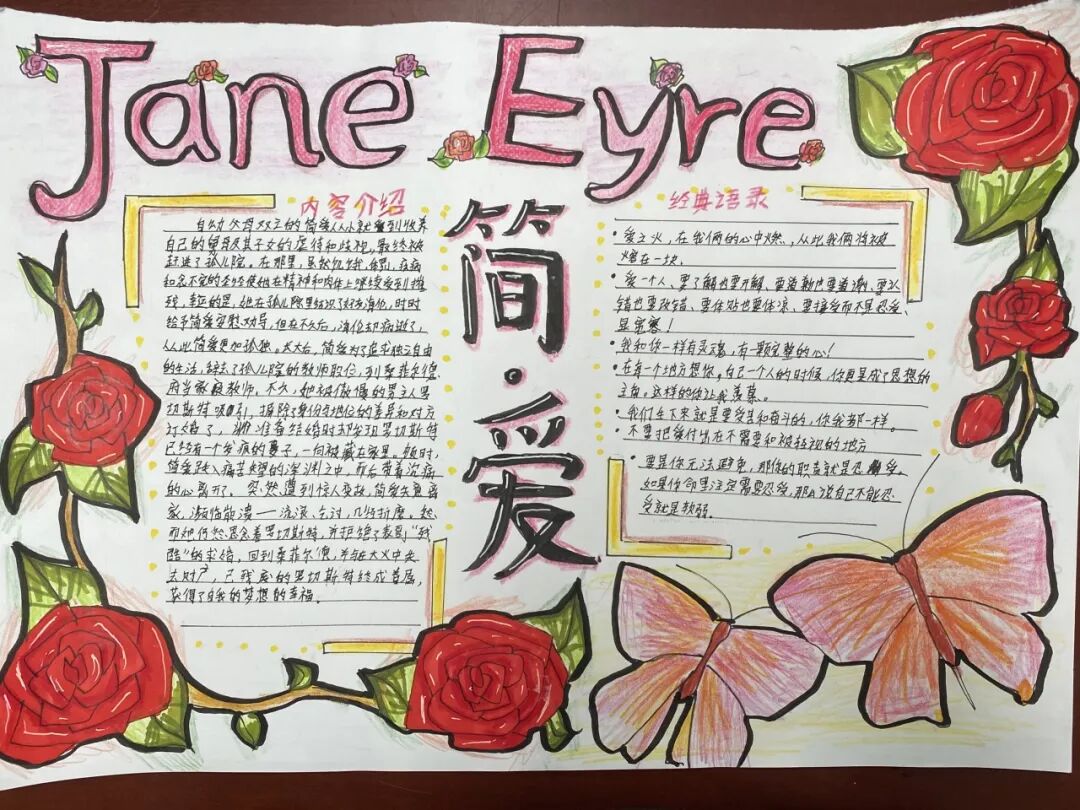 Jane Eyre
简·爱
内容介绍
自幼父母双亡的简爱从小就受到收养
自己的舅母及其子女的虐待和歧视,最终被
赶进了孤儿院。在那里,虽然饥饿、体罚、疾病
和念不完的圣经使她在精神和肉体上继续受到摧
残,幸运的是,她在孤儿院里结识了好友海伦,时时
给予简爱安慰、劝导,但在不久后,海伦却病逝了,
从此简爱更加孤独。长大后,简爱为了追求独立自由
的生活,辞去了孤儿院的教师职位,到桑菲尔德
府当家庭教师。不久,她被傲慢的男主人罗
切斯特吸引,排除身份与地位的差异和对方
订婚了,准备结婚时却发现罗切斯特
已经有一个发疯的妻子,一向被藏在家里。顿时,
简爱跌入痛苦失望的深渊之中,而后带着沉痛
的心离开了。突然遭到惊人变故,简爱失魂
家,濒临崩溃——流浪、乞讨,几经折磨。
而她仍然思念着罗切斯特,并拒绝了表哥"残
酷"的求婚,回到桑菲尔德,并与在大火中失
去财产,已残废的罗切斯特终成眷属,
获得了自我的梦想的幸福。
经典语录
•爱之火,在我俩的心中燃,从此我俩将被
熔在一块。
•爱一个人,要了解也要开解、要道歉也要道谢、要认
错也要改错、要体贴也要体谅、要接受而不是忍受、
是宽容!
•我和你一样有灵魂,有一颗完整的心!
•在每一个地方想你。自己一个人的时候,你更是成了思想的
主宰。这样的你让我羡慕。
•我们生下来就是要受苦和奋斗的,你我都一样。
•不要把爱付出在不需要和被轻视的地方
•要是你无法避免,那你的职责就是忍受。
如果你命里注定需要忍受,那么说自己不能忍
受就是软弱。